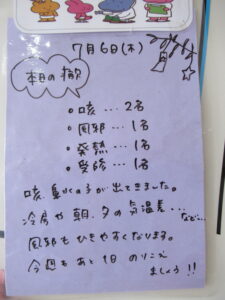 7月6日(木)
本日の欠
・咳… 2名
・風邪… 1名
・発熱… 1名
・受診… 1名
咳、鼻水の子が出てきました。
冷房や朝、夕の気温差…など…、
風邪もひきやすくなります。
今週もあと1日のりこえ
ましょう!!